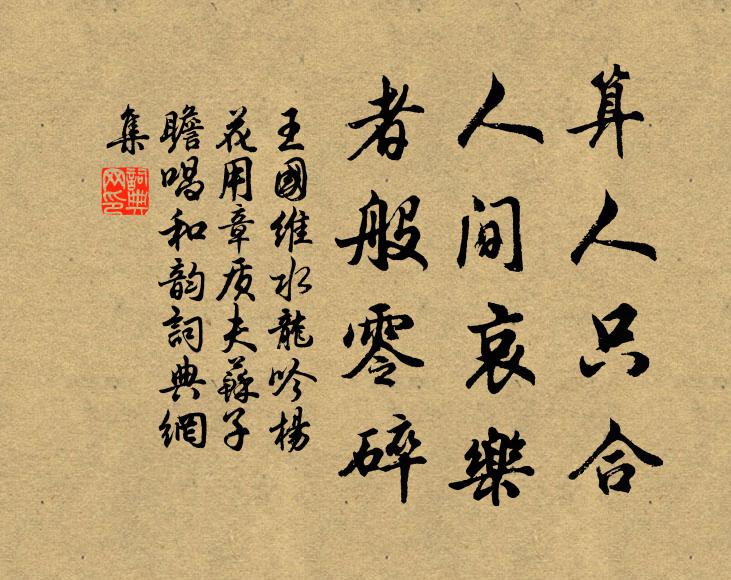 算人只合
人間哀樂
者般零碎
王國維水龍吟楊
花用章质夫蘇子
瞻唱和韵詞典網
集
詞典网印